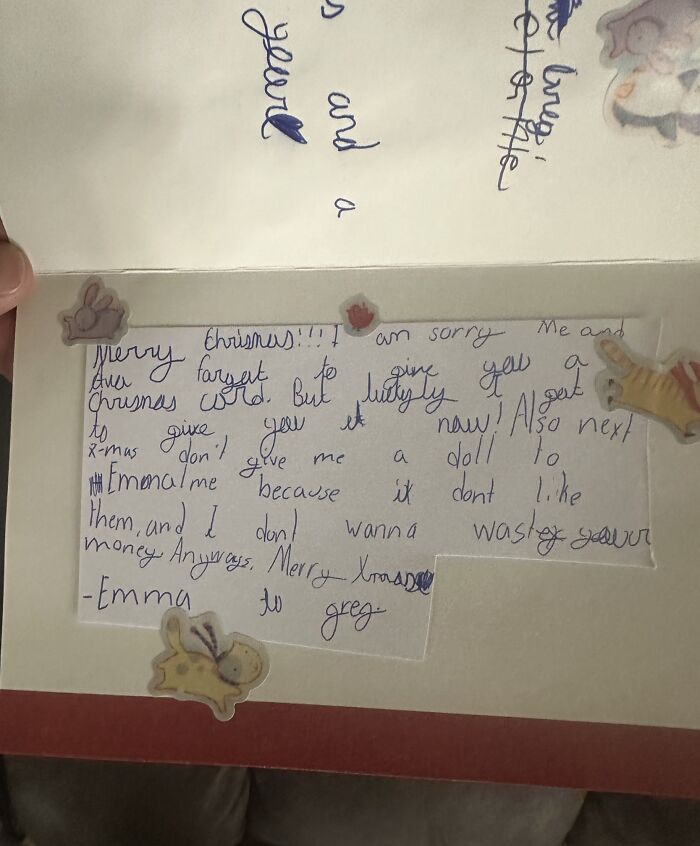 s and a
yeare
Greg;
Merry Chrismus!!! I am sorry Me and
Ava farget to give you a
Chrismas card. But luckyly I get
to give you it now! Also next
x-mas don't give me a doll to
Emma/me because it dont like
them, and I dont wanna waste your
money. Anyways, Merry Xmas
-Emma to greg.